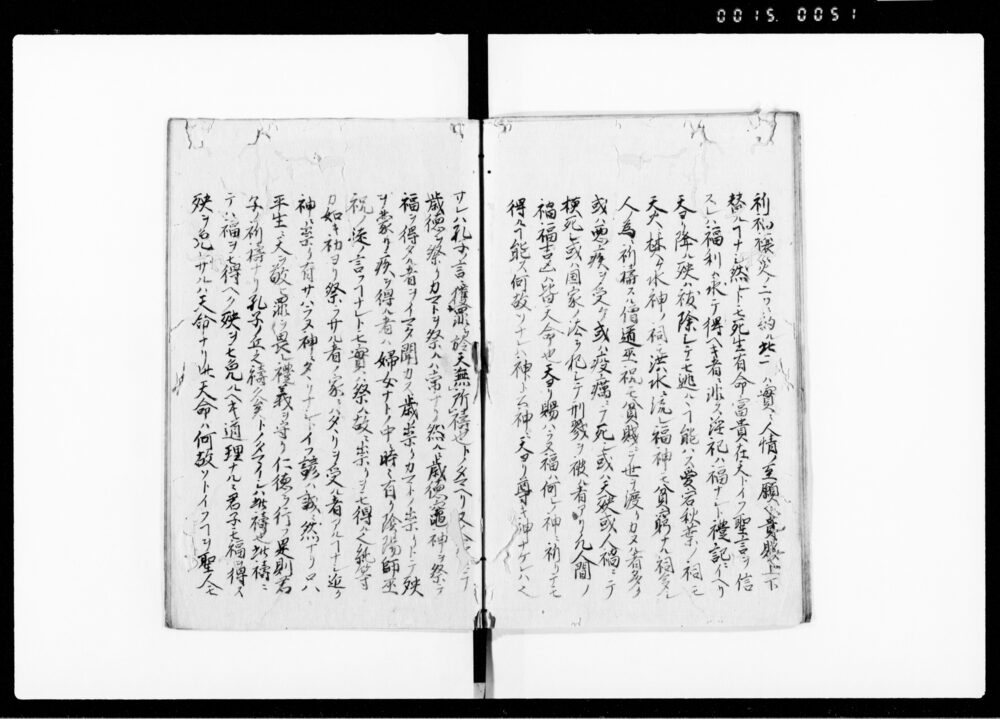 0015. 0051
祈福禳災ノ二ツ約ル此二ハ實ニ人情ノ至願ニ貴賤上下
替ルヿナシ然レトモ死生有命富貴在天トイフ聖言ヲ信
スレハ福利ハ求テ得ヘキ者ニ非ス淫祀ハ福ナシト禮記ニイヘリ
天ヨリ降ル殃ハ祓除シテモ逃ルヽヿ能ハス愛宕秋葉ノ祠モ
天火ニ焼ケ水神ノ祠ニ洪水ニ流レ福神モ貧窮ナル祠多シ
人ノ為ニ祈禱スル僧道巫祝モ貧賤ニテ世ヲ渡リカヌル者多ク
或ハ悪疾ヲ受ケ或ハ疫癘ニテ死シ或ハ天殃或ハ人禍ニテ
横死シ或ハ国家ノ法ヲ犯シテ刑戮ヲ被ル者アリ凡人間ノ
禍福吉凶ハ皆天命也天ヨリ賜ハラヌ福ハ何レノ神ニ祈リテモ
得ルヿ能ハス何故ソナレハ神トイヘトモ神ハ天ヨリ尊キ神ナケレハ
ナレハ孔子ノ言ニ獲罪於天無所禱也トノタマヘリ又
歳德ヲ祭リカマトヲ祭ルハ常ナリ然ルニ歳德竈神ヲ祭テ
福ヲ得タル者ヲイマタ聞カス歳祟リカマトノ祟リトテ殃
ヲ蒙リ疾ヲ得ル者ハ婦女ナトノ中ニ時々有リ陰陽師巫
祝ノ徒ノ言フヿナレトモ實ハ祭ル故ニ祟リヲモ得ル也紘等
カ如キ初ヨリ祭ラサル者ノ家ニハタヽリヲ受ル者アルヿナシ近ク
神ハ祟リ有サハラヌ神ニタヽリナシトイフ諺ハ誠ニ然ナリ只ハ
平生ニ天ヲ敬ヒ罪ヲ畏レ禮義ヲ守リ仁德ヲ行フ是則君
子ノ祈禱ナリ孔子ノ丘之禱久矣トノタマイシハ此禱也此禱ニ
テハ福ヲモ得ヘク殃ヲモ免ルヘキ道理ナルニ君子モ福ヲ得ス
殃ヲ免レサルハ天命ナリ此天命ハ何故ソトイフヿヲ聖人モ